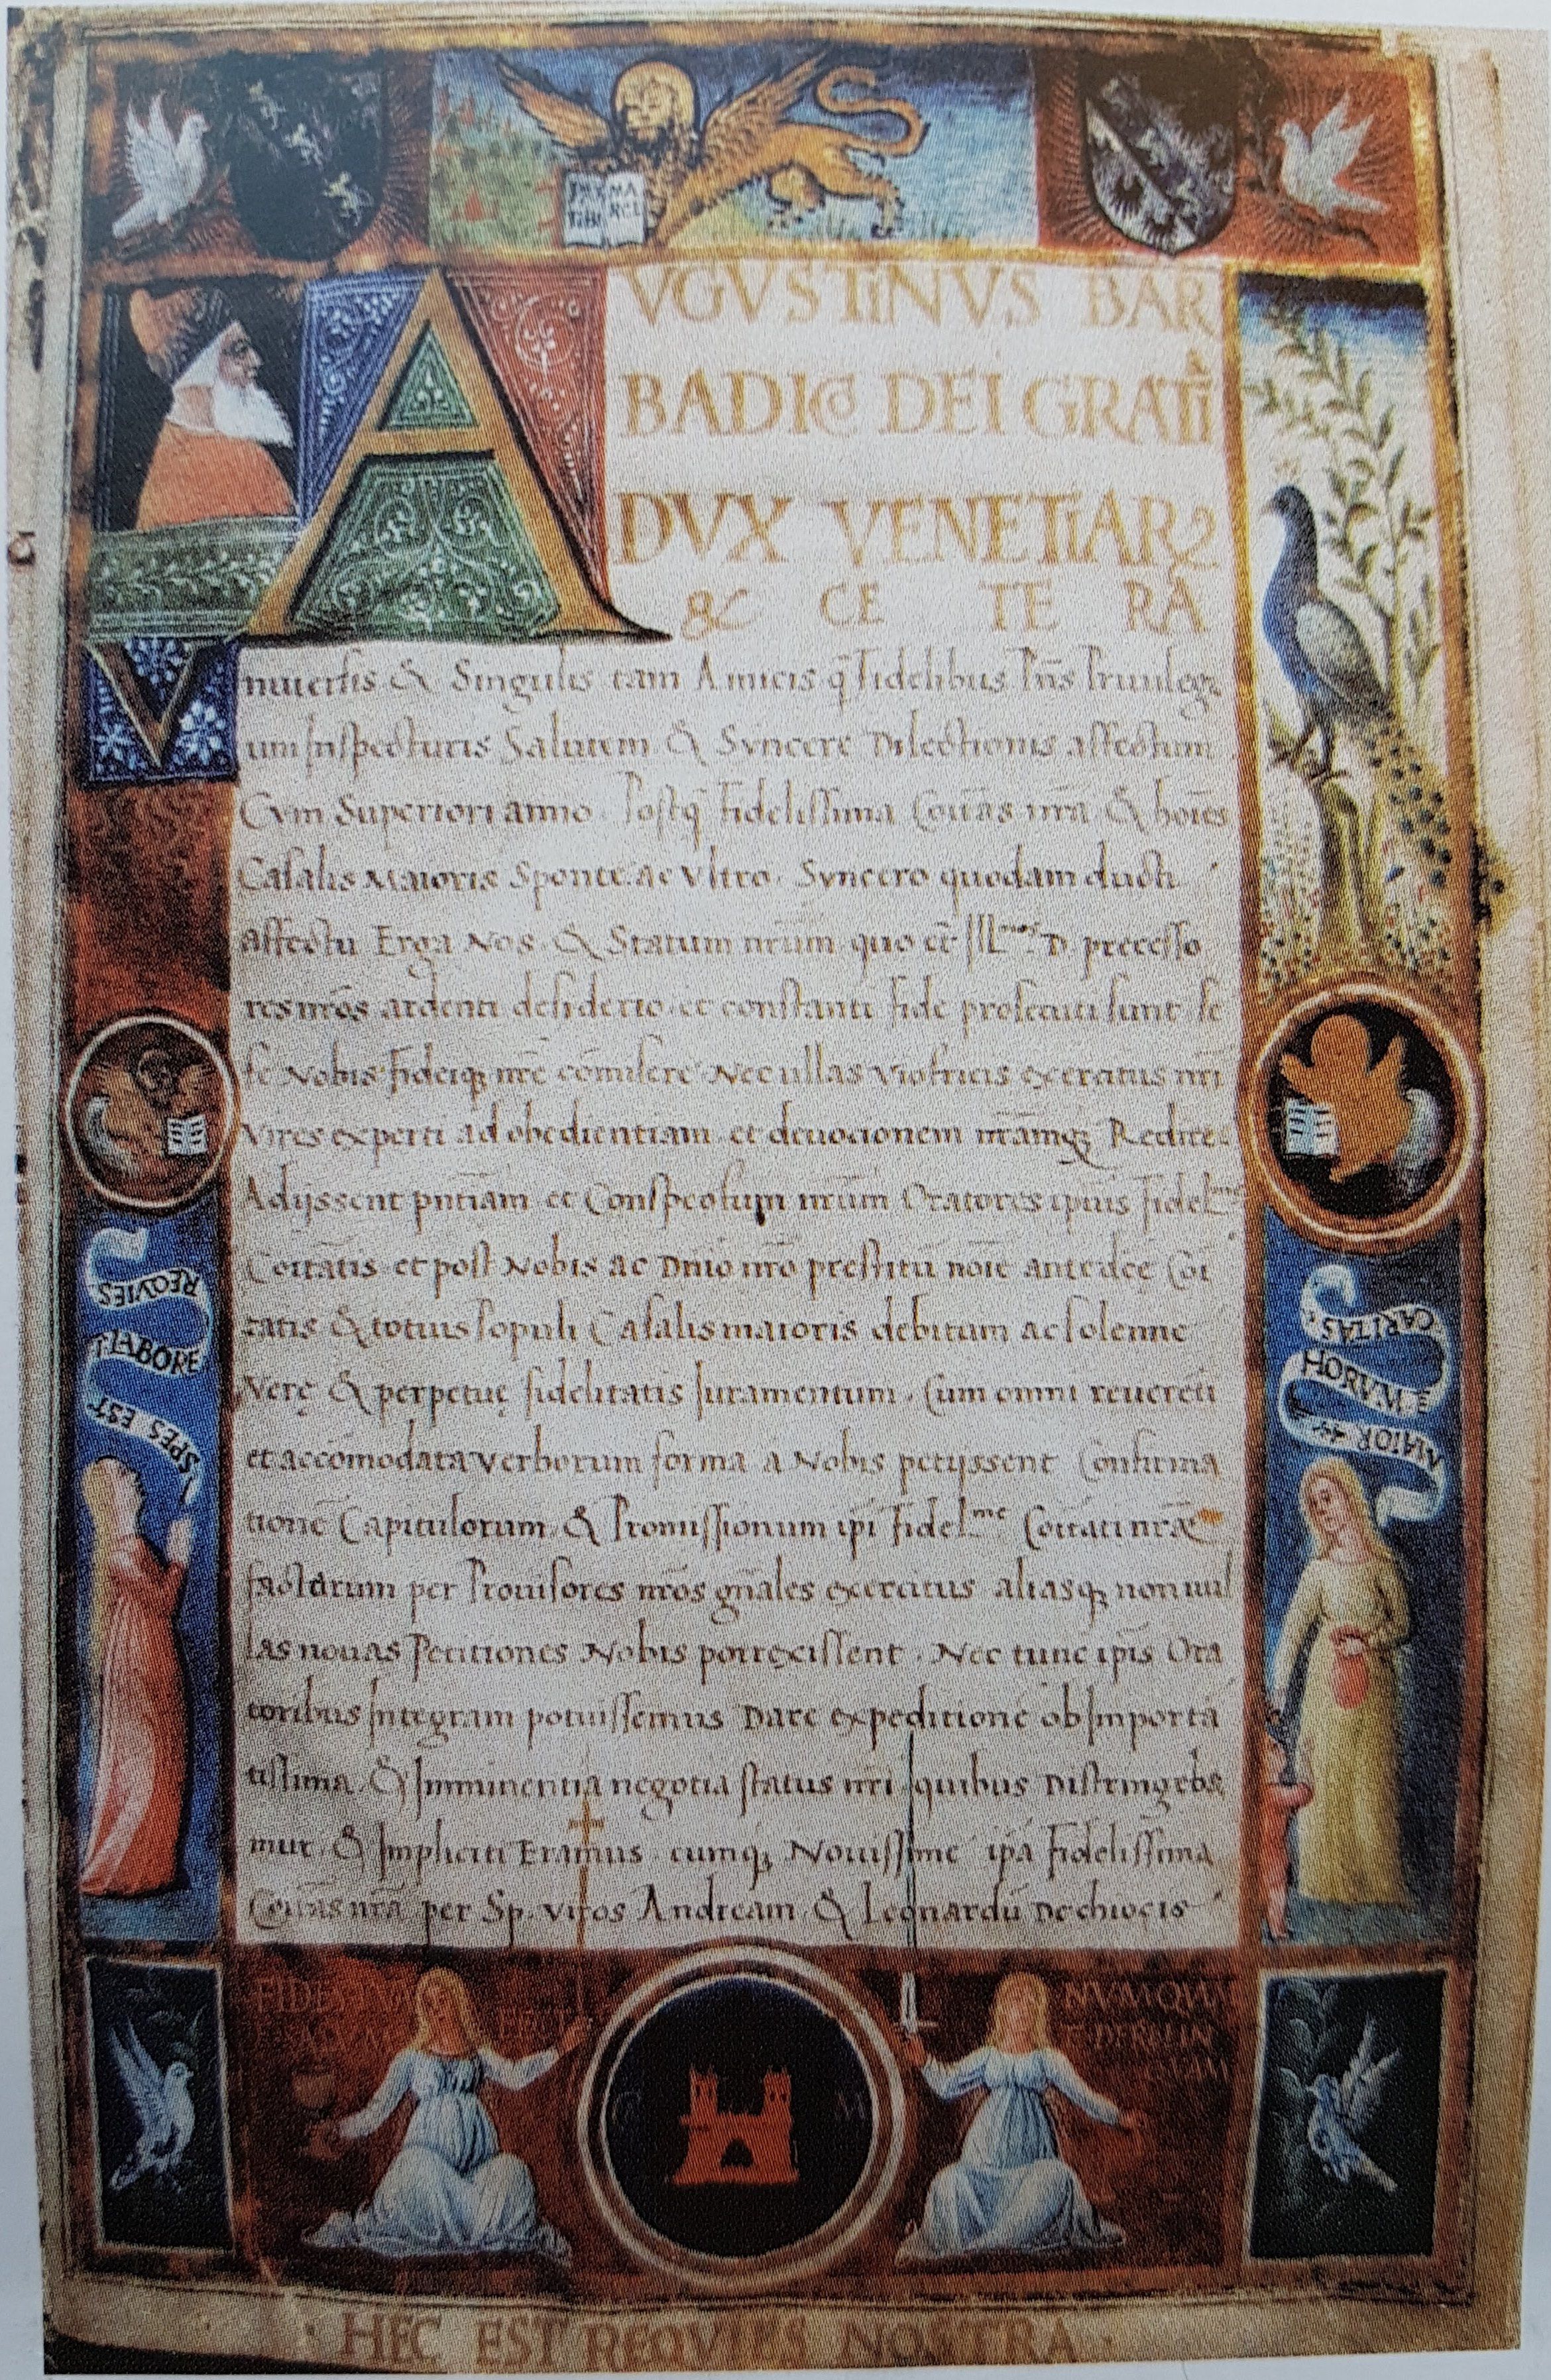 PAX MA
TIBI RCE
AVGVSTiNVS BAR
BADIC9 DEI GRATi
DVX VENETiAR
& CE TE RA
Vniuersis & Singulis tam Amicis q̄ Fidelibus Pn̄s Priuilegi
um Inspecturis Salutem & Syncere Dilectionis affectum
Cvm Superiori anno Postq̄ Fidelissima Coītas nr̄a & hoīes
Casalis Maioris Sponte ac Vltro Syncero quodam ducti
affectu Erga Nos & Statum nr̄um quo et Ill.mos D. precesso
res nr̄os ardenti desiderio et constanti fide prosecuti sunt se
se Nobis Fideiq; nr̄e cōmisere Nec ullas Victricis exercitus nr̄i
Vires experti ad obedientiam et deuocionem nr̄amq; Redire
Adijssent pn̄tiam et Conspectum nr̄um Oratores ipsius fidel.me
Coītatis et post Nobis ac Dn̄io nr̄o prestitū noīe antedcē Coī
tatis & totius Populi Casalis maioris debitum ac solenne
Verę & perpetuę fidelitatis Iuramentum Cum omni reuerēti
et accōmodata verborum forma a Nobis petijssent Confirma
tionē Capitulorum & Promissionum ipī Fidel.me Coītati nr̄æ
factarum per Prouisores nr̄os gn̄ales exercitus aliasq; nonnul
las nouas Petitiones Nobis porrexissent Nec tunc ipīs Ora
toribus Integram potuissemus Dare expeditionē ob Importā
tissima & Imminentia negotia status nr̄i quibus Distringeba
mur & Impliciti Eramus cumq; Nouissime ipā Fidelissima
Coītas nr̄a per Sp. viros Andream & Leonardū De chiocis
REQVIES
LABORE
SPES EST
CARITAS
HORVM
MAIOR
FIDES
NVMQVA
DERELIN
C M
HEC EST REQVIES NOSTRA